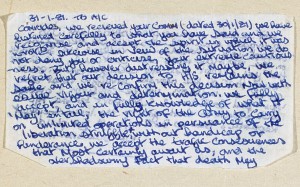 31-1-81. To A/C
Comrades, we recieved your Comm (dated 30/1/81) we have
listened carefully to what you have said and we
recognise and accept the spirit in which it was
wrote, likewise in view of the situation we do
not deny you or criticise your extreme cautiousness
However, distressing it may be, we
regret that our decision to H.S. remains the
same and we re-confirm this decision now with
and determination. We fully
accept, and in full knowledge of what it
'May' entail, the right of the Army to carry
on unlimited operations in pursuance of the
liberation struggle, without handicap or
hinderance. We accept the tragic consequences
that most certainly awaits us and the
overshadowing fact that death may